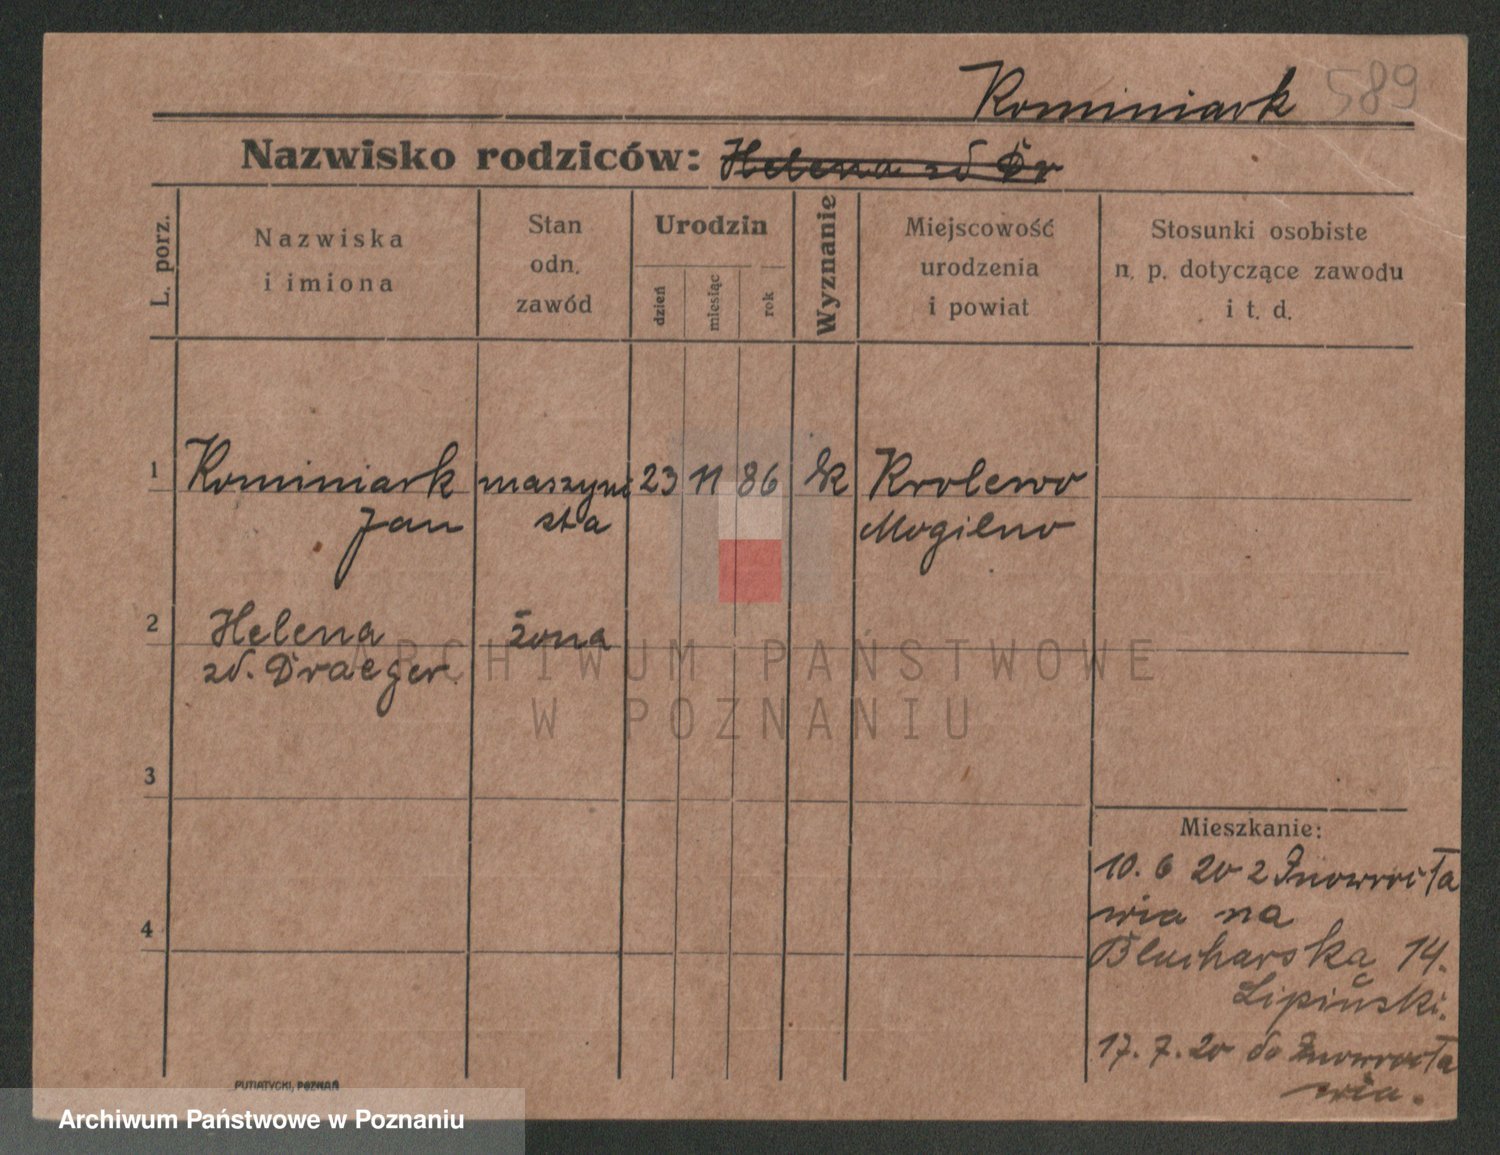 Kominiark 589
Nazwisko rodziców: Helena zd Dr
L. porz.
Nazwiska
i imiona
Stan
odn.
zawód
Urodzin
dzień
miesiąc
rok
Wyznanie
Miejscowość
urodzenia
i powiat
Stosunki osobiste
n. p. dotyczące zawodu
i t. d.
1 Kominiark maszyni 23 11 86 k Krolewo
Jan sta Mogilno
2 Helena żona
zd. Draeger
3
4
Mieszkanie:
10. 6 20 z Inowrocła
wia na
Blucharska 14.
Lipiński.
17. 7. 20 do Inowrocła
wia.
PUTIATYCKI, POZNAŃ
ARCHIWUM PAŃSTWOWE
W POZNANIU
Archiwum Państwowe w Poznaniu